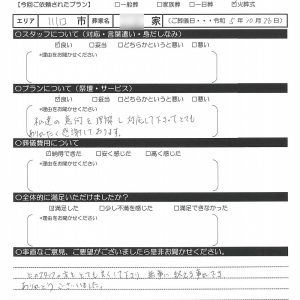 【今回ご依頼されたプラン】 □一般葬 □家族葬 □一日葬 ☑火葬式
エリア 川口 市 葬家名 家 (ご葬儀日・・・令和5年10月28日)
○スタッフについて（対応・言葉遣い・身だしなみ）
☑良い □妥当 □どちらかというと悪い □悪い
*理由をお聞かせください
○プランについて（祭壇・サービス）
☑良い □妥当 □どちらかというと悪い □悪い
*理由をお聞かせください
私達の意向を理解し対応して下さってとても
ありがたく感謝しております。
○葬儀費用について
☑納得できた □安く感じた □高く感じた
*理由をお聞かせください
○全体的に満足いただけましたか？
☑満足した □少し不満を感じた □満足できなかった
*理由をお聞かせください
○率直なご意見、ご要望がございましたら是非お聞かせください。
どのスタッフの方もとても良くして下さり 無事に終える事ができ
ありがとうございました。